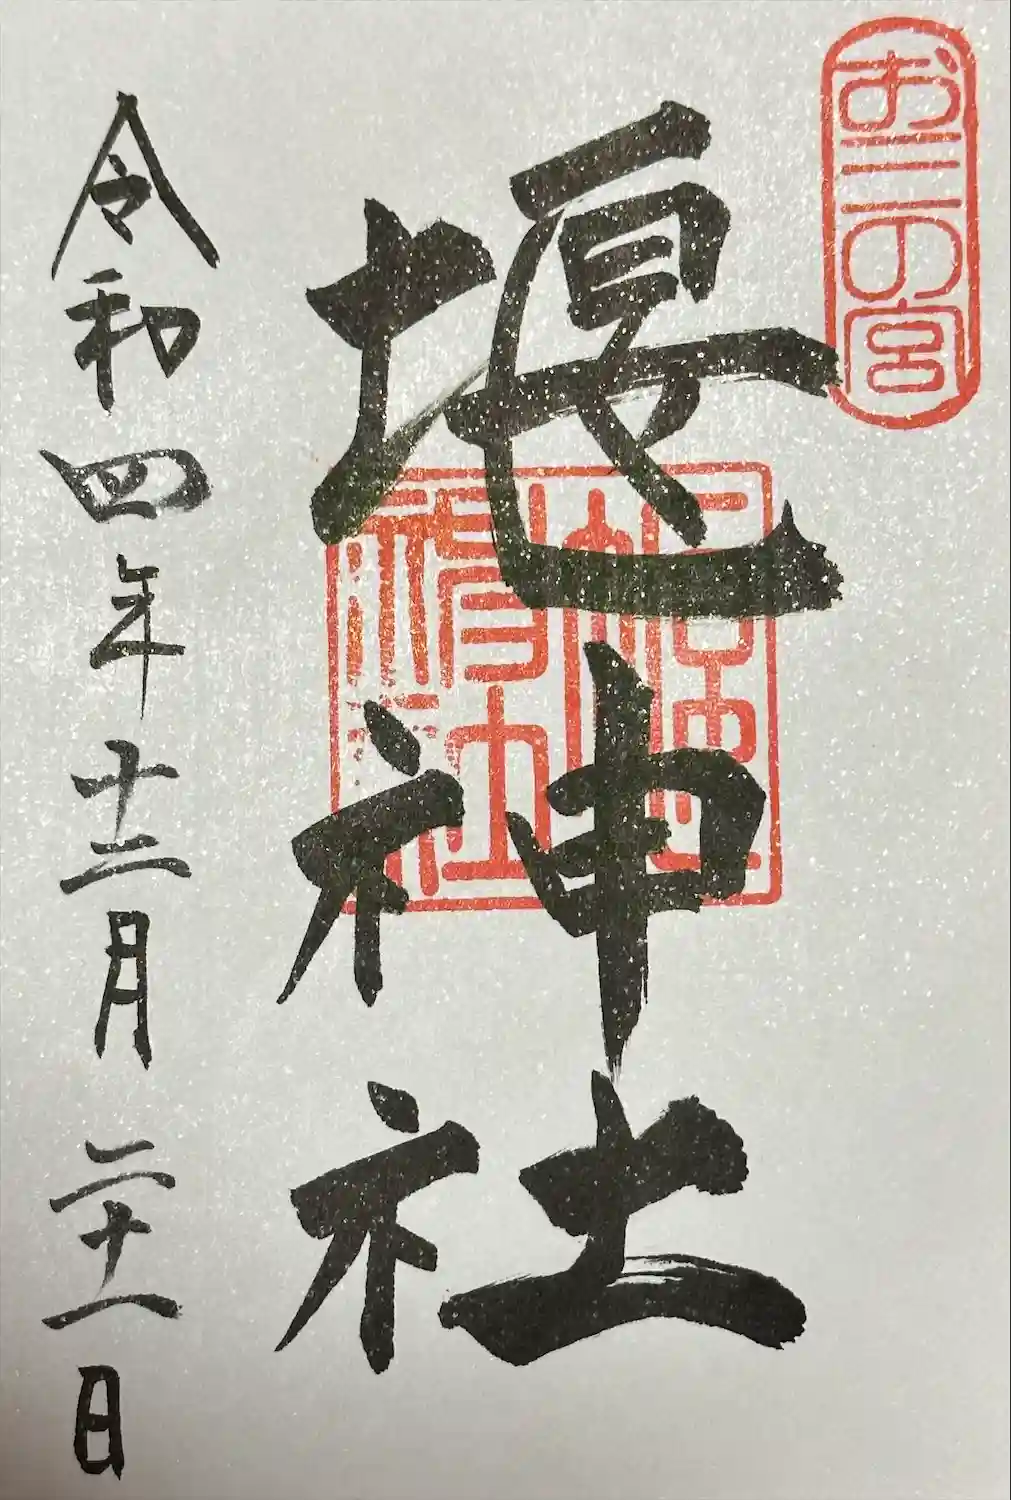 お三の宮
堰神社
令和四年十二月二十一日